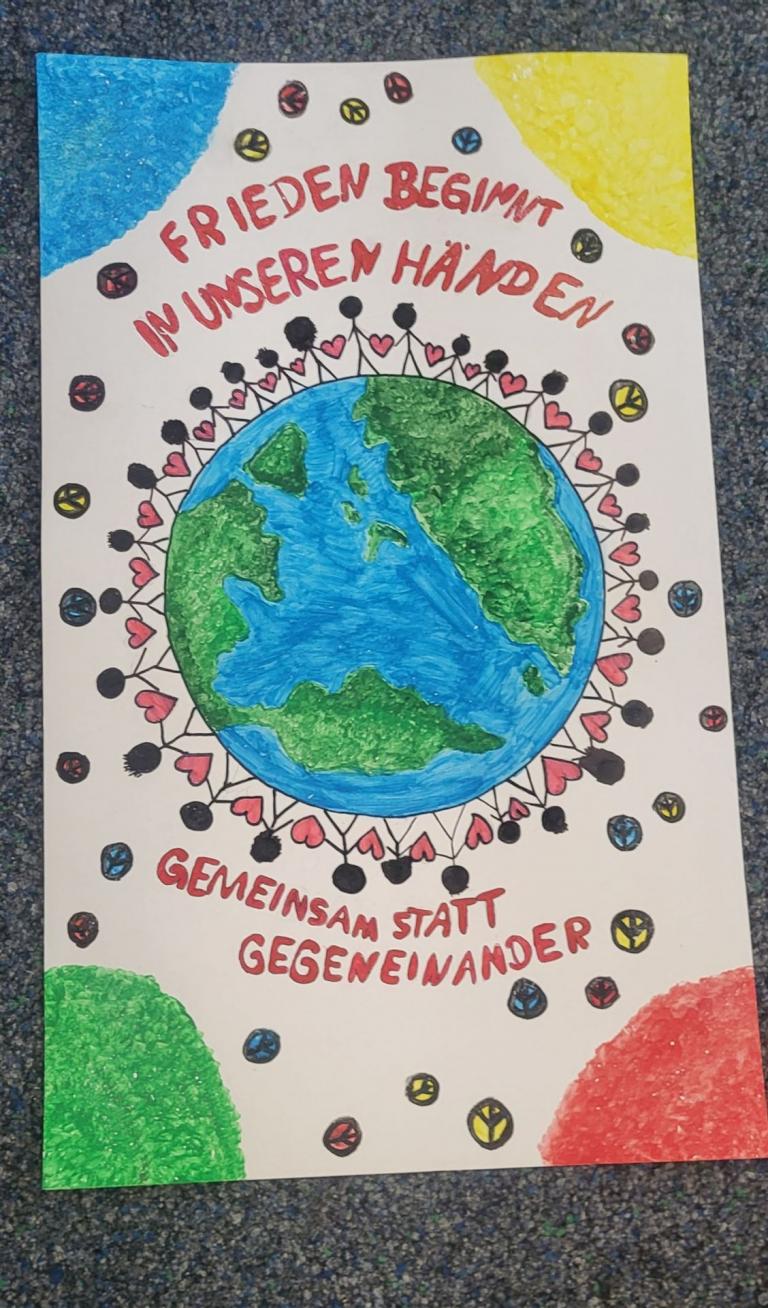 FRIEDEN BEGINNT
IN UNSEREN HÄNDEN
GEMEINSAM STATT
GEGENEINANDER